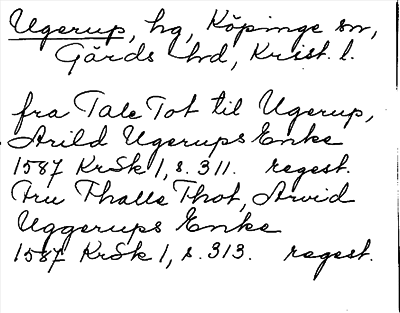 Ugerup, hg, Köpinge sn,
Gärds hd, Krist. l.
fra Tale Tot til Ugerup,
Arild Ugerups Enke
1587 KrSk 1, s. 311. regest.
Fru Thalle Thot, Arvid
Uggerups Enke
1587 KrSk 1, s. 313. regest.